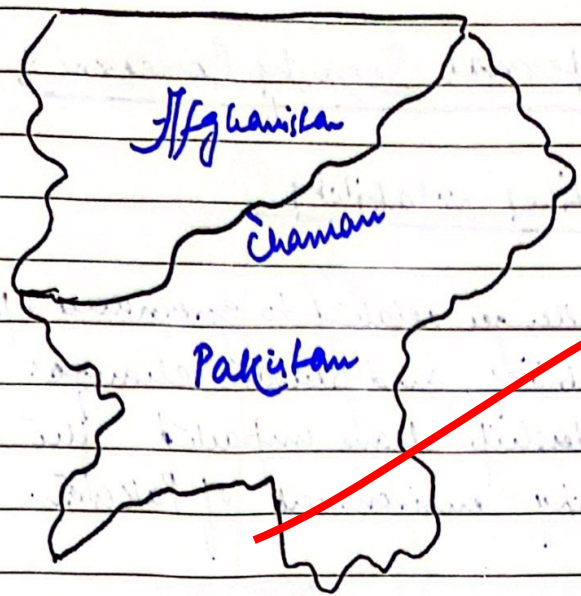 Afghanistan
Chaman
Pakistan